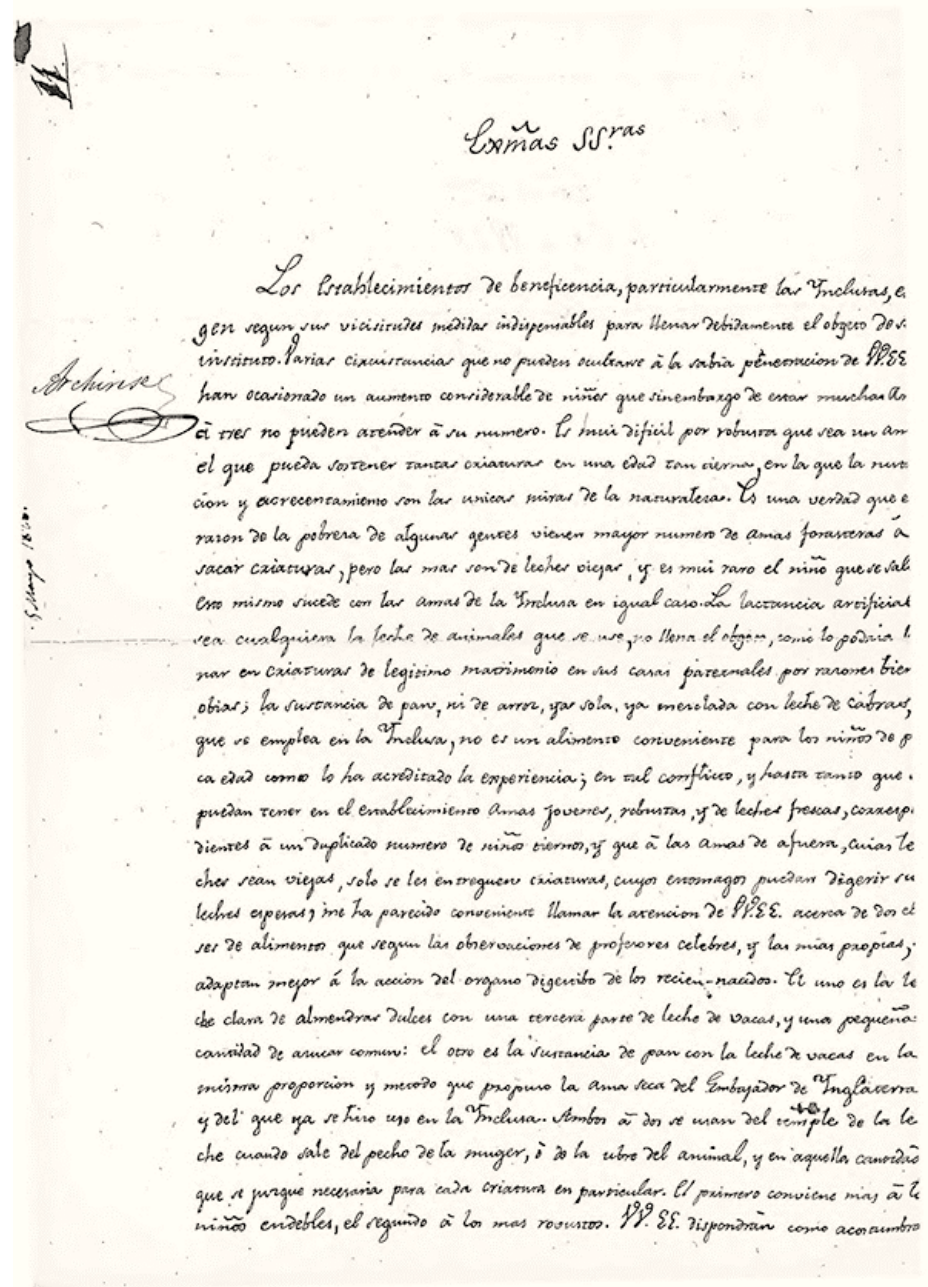 11
Exm̃as SS.ras
Los Establecimientos de beneficencia, particularmente las Ynclusas, e
gen segun sus vicisitudes medidas indispensables para llenar debidamente el objeto de s
instituto. Varias circustancias que no pueden ocultarse â la sabia penetracion de VV.EE
han ocasionado un aumento considerable de niños que sinembargo de estar muchas
â tres no pueden atender â su numero. Es mui dificil por robusta que sea un am
el que pueda sostener tantas criaturas en una edad tan tierna, en la que la nutr
cion y acrecentamiento son las unicas miras de la naturaleza. Es una verdad que e
razon de la pobreza de algunas gentes vienen mayor numero de amas forasteras â
sacar criaturas, pero las mas son de leches viejas, y es mui raro el niño que se sal
esto mismo sucede con las amas de la Ynclusa en igual caso. La lactancia artificial
sea cualquiera la leche de animales que se use, no llena el objeto, como lo podria l
nar en criaturas de legitimo matrimonio en sus casas paternales por razones bien
obias; la sustancia de pan, ni de arroz, ya sola, ya mezclada con leche de cabras,
que se emplea en la Ynclusa, no es un alimento conveniente para los niños de p
ca edad como lo ha acreditado la experiencia; en tal conflicto, y hasta tanto que
puedan tener en el establecimiento Amas jovenes, robustas, y de leches frescas, corresp
dientes â un duplicado numero de niños tiernos, y que â las amas de afuera, cuias le
ches sean viejas, solo se les entreguen criaturas, cuyos estomagos puedan digerir su
leches espesas; me ha parecido conveniente llamar la atencion de VV.EE. acerca de dos cl
ses de alimentos que segun las observaciones de profesores celebres, y las mias propias,
adaptan mejor â la accion del organo digestibo de los recien-nacidos. El uno es la le
che clara de almendras dulces con una tercera parte de leche de vacas, y una pequeña
cantidad de azucar comun: el otro es la sustancia de pan con la leche de vacas en la
misma proporcion y metodo que propuso la ama seca del Embajador de Ynglaterra
y del que ya se hizo uso en la Ynclusa. Ambos â dos se usan del temple de la le
che cuando sale del pecho de la muger, ô de la ubre del animal, y en aquella cantidad
que se juzgue necesaria para cada criatura en particular. El primero conviene mas â l
niños endebles, el segundo â los mas robustos. VV. EE. dispondrán como acostumbra
5 Mayo